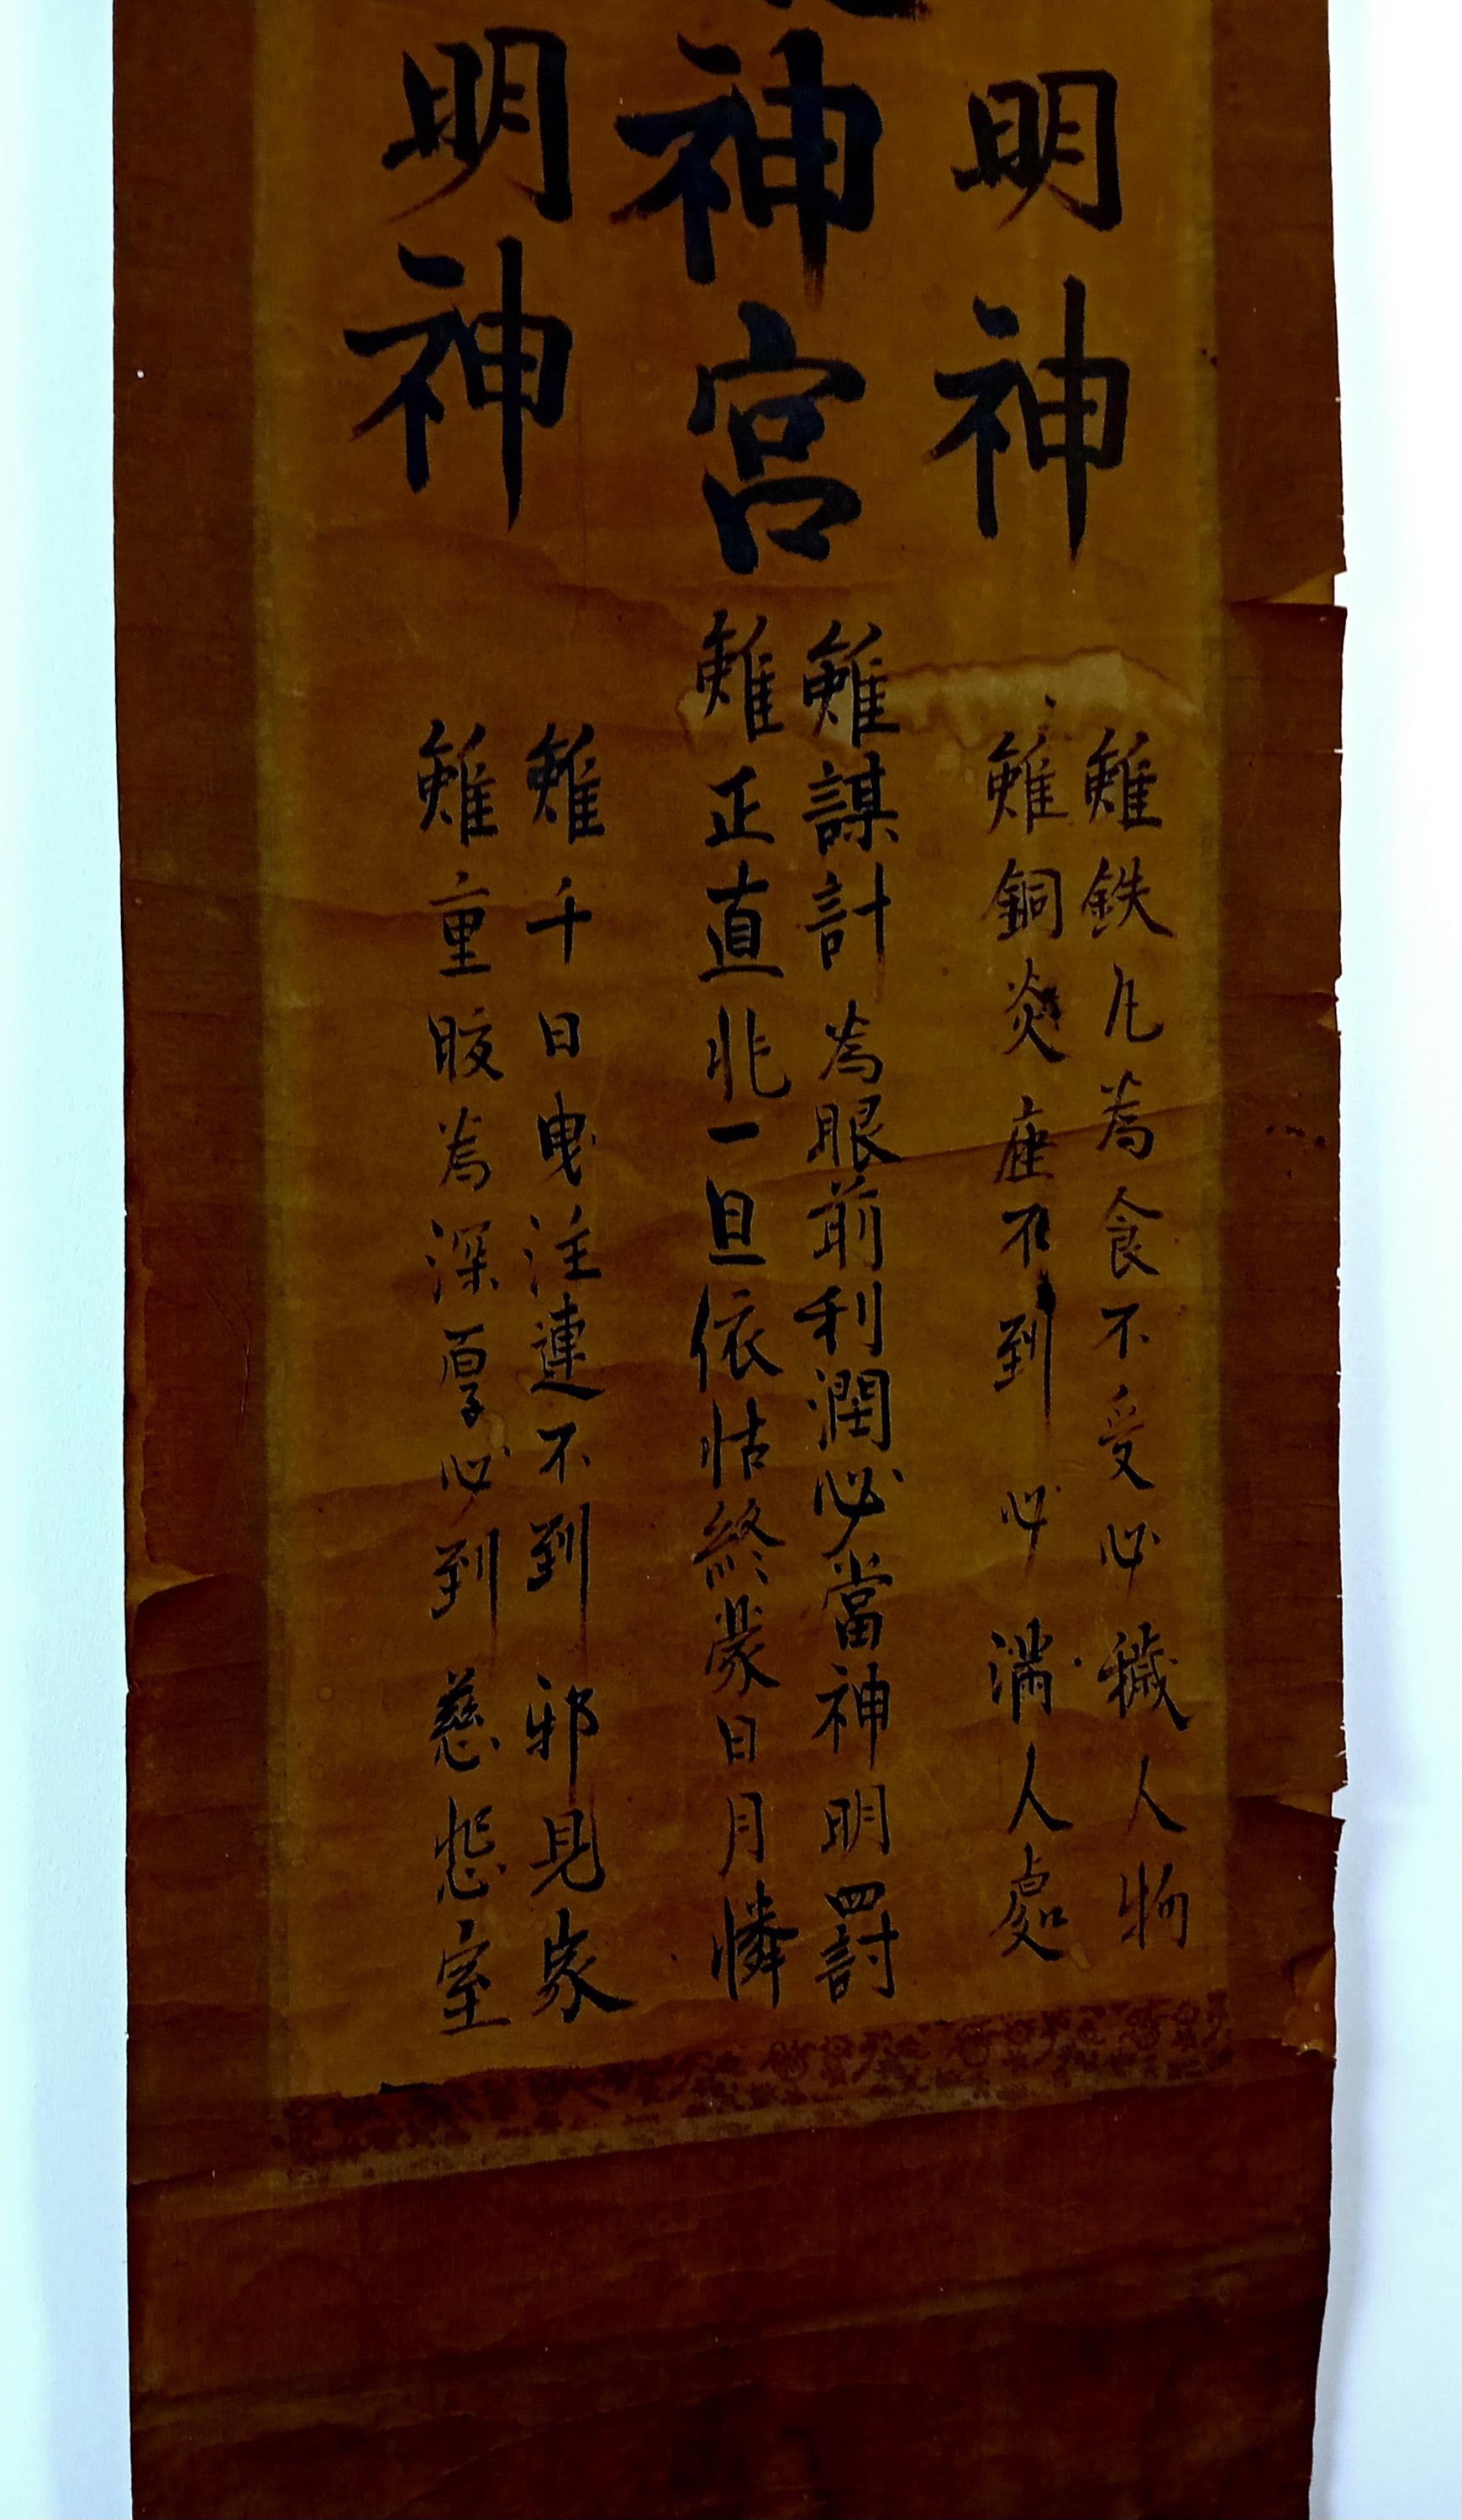 明神
雖鉄丸為食不受必穢人物
雖銅炎座不到必満人處
神宮
雖謀計為眼前利潤必當神明罰
雖正直非一旦依怙終蒙日月憐
明神
雖千日曳注連不到邪見家
雖重服為深厚必到慈悲室